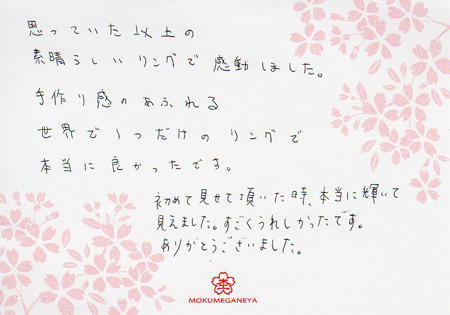 思っていた以上の
素晴らしいリングで感動しました。
手作り感のあふれる
世界で1つだけのリングで
本当に良かったです。
初めて見せて頂いた時、本当に輝いて
見えました。すごくうれしかったです。
ありがとうございました。
MOKUMEGANEYA